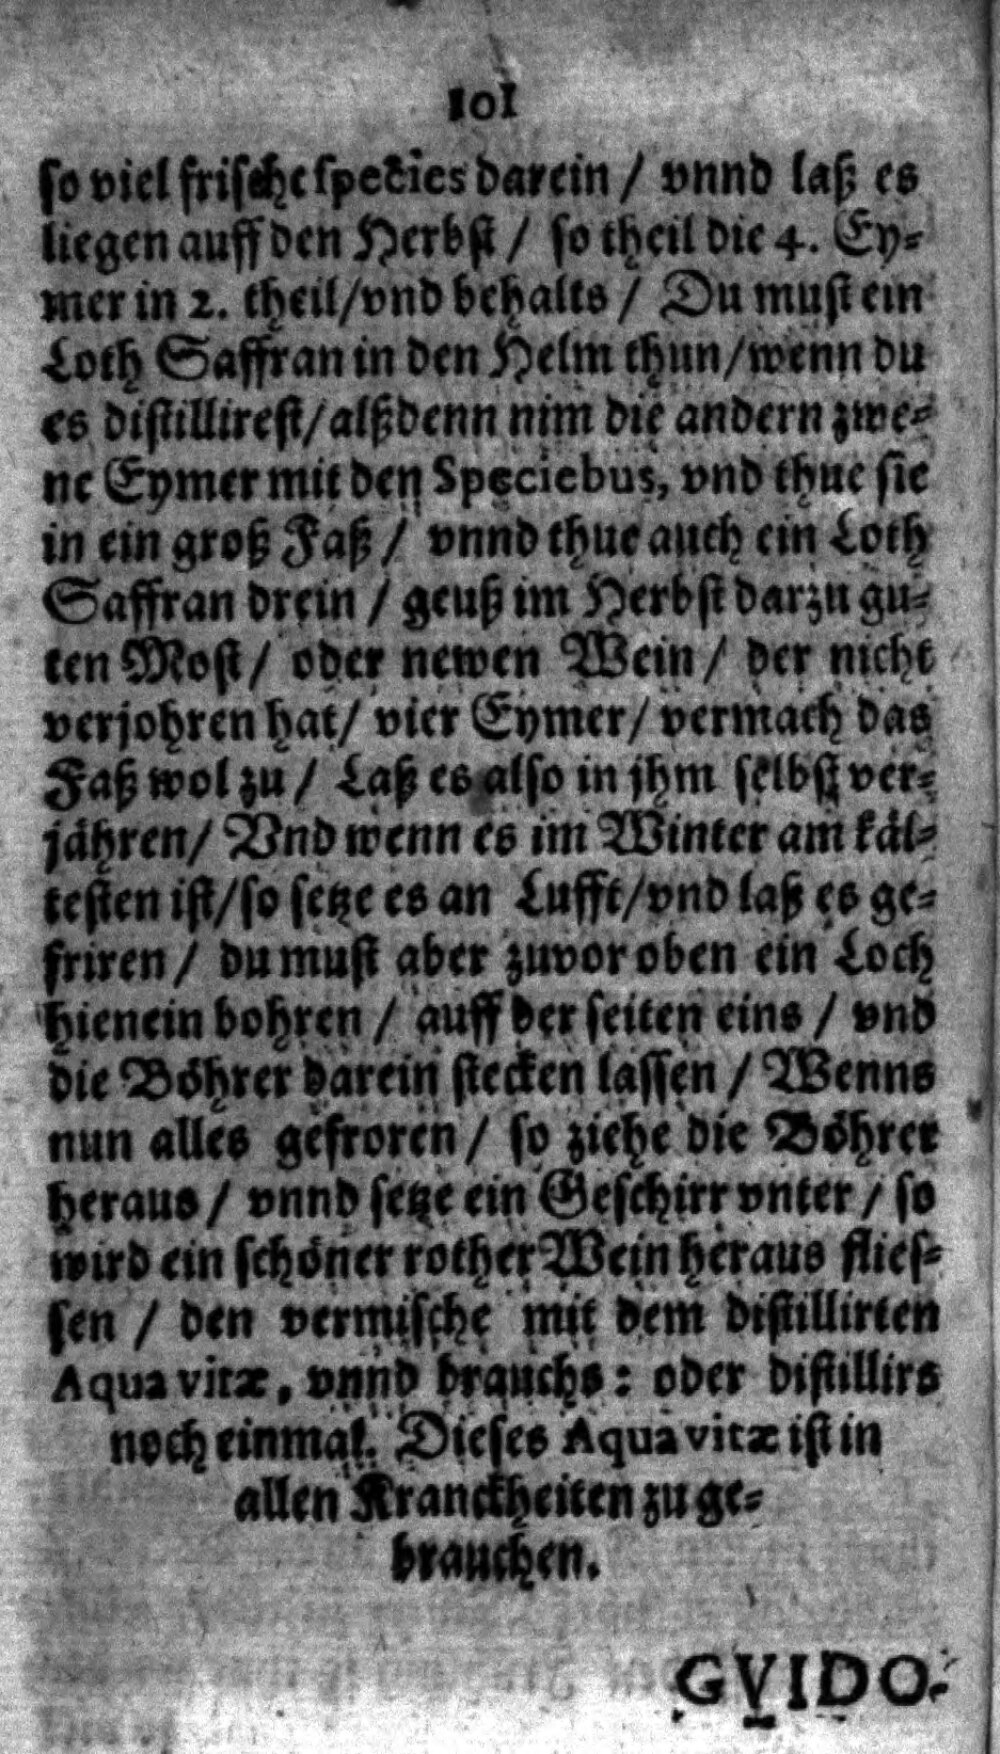 101
so viel frische species darein / vnnd laß es
liegen auff den Herbst / so theil die 4. Ey-
mer in 2. theil/vnd behalts / Du must ein
Loth Saffran in den Helm thun/wenn du
es distillirest/alßdenn nim die andern zwe-
ne Eymer mit den Speciebus, vnd thue sie
in ein groß Faß / vnnd thue auch ein Loth
Saffran drein / geuß im Herbst darzu gu-
ten Most/ oder newen Wein / der nicht
verjohren hat/ vier Eymer/ vermach das
Faß wol zu / Laß es also in jhm selbst ver-
jähren/ Vnd wenn es im Winter am käl-
testen ist/so setze es an Lufft/vnd laß es ge-
friren / du must aber zuvor oben ein Loch
hienein bohren / auff der seiten eins / vnd
die Böhrer darein stecken lassen / Wenns
nun alles gefroren / so ziehe die Böhrer
heraus / vnnd setze ein Geschirr vnter / so
wird ein schöner rother Wein heraus flies-
sen / den vermische mit dem distillirten
Aqua vitæ, vnnd brauchs: oder distillirs
noch einmal. Dieses Aqua vitæ ist in
allen Kranckheiten zu ge-
brauchen.
GVIDO-